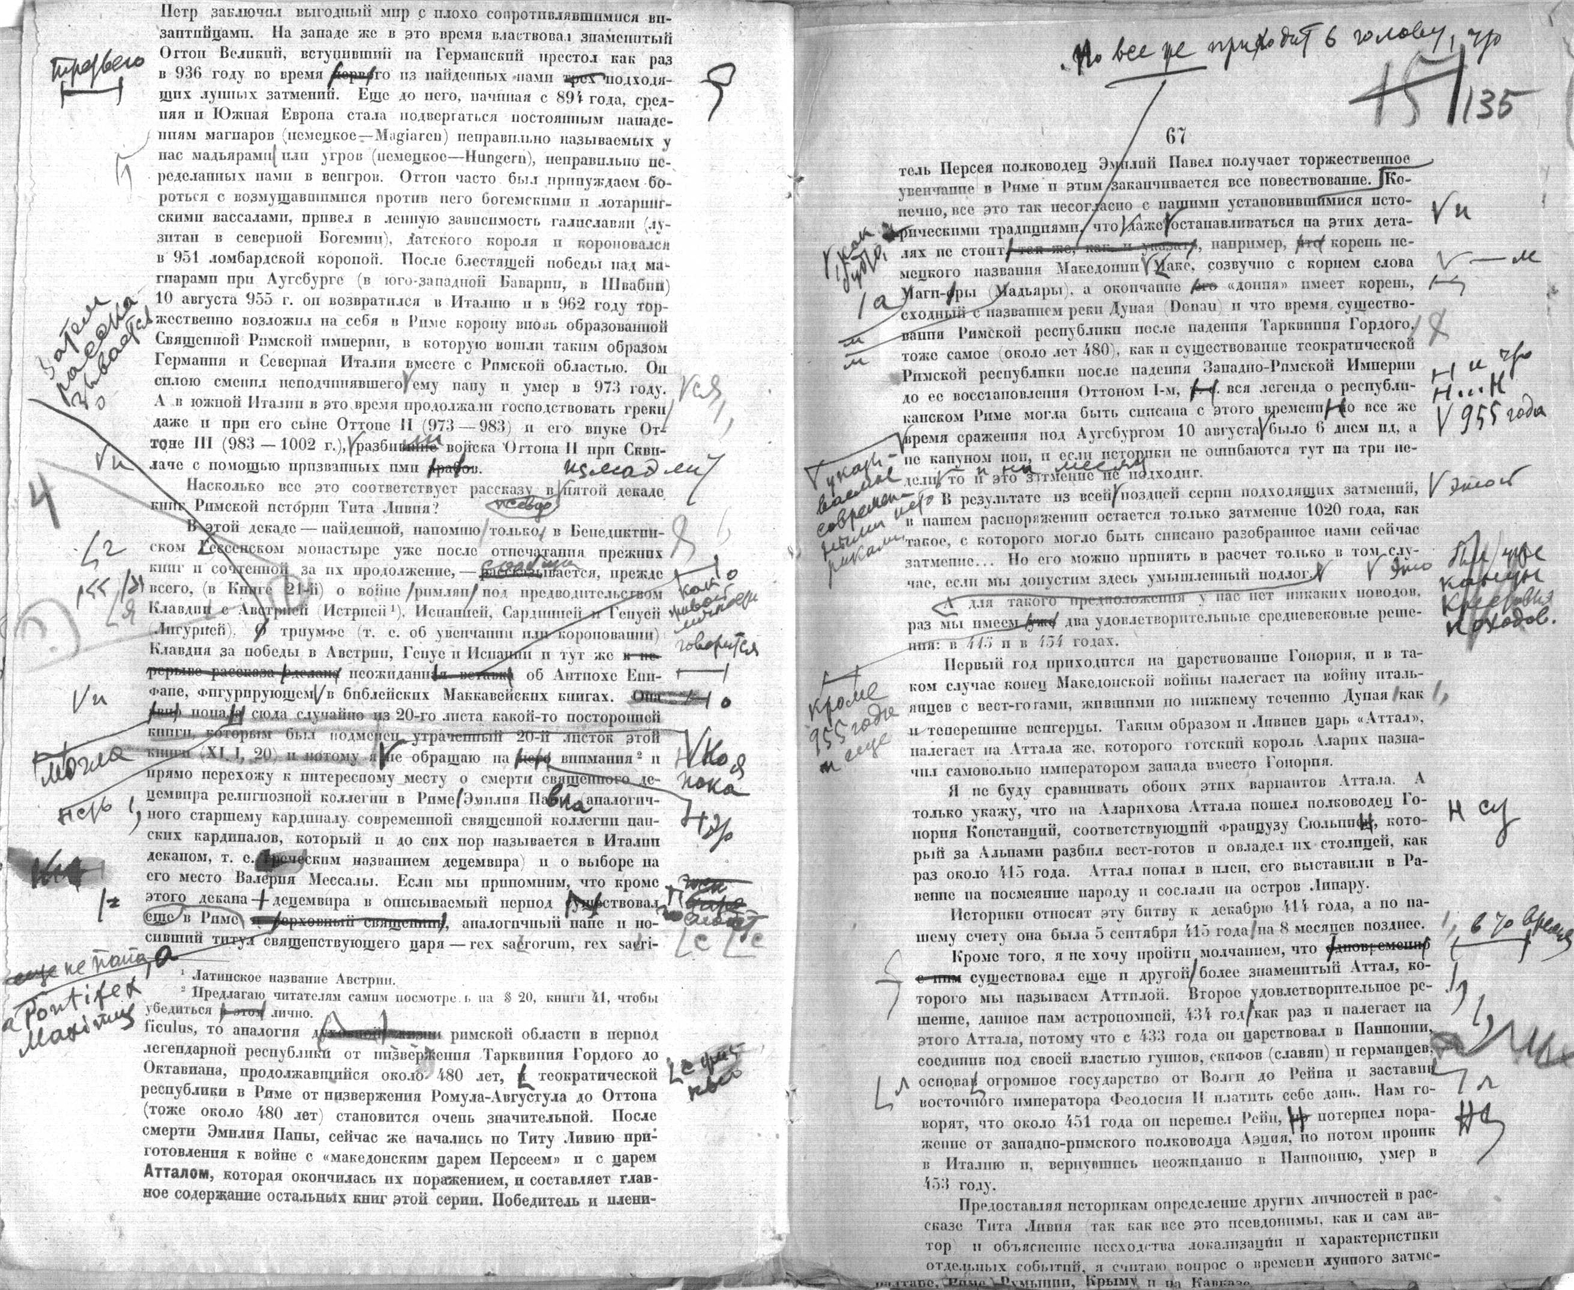 Петр заключил выгодный мир с плохо сопротивлявшимися ви-
зантийцами. На западе же в это время властвовал знаменитый
Оттон Великий, вступивший на Германский престол как раз
в 936 году во время первого из найденных нами трех подходя-
щих лунных затмений. Еще до него, начиная с 894 года, сред-
няя и Южная Европа стала подвергаться постоянным нападе-
ниям магиаров (немецкое—Magiaren) неправильно называемых у
нас мадьярами или угров (немецкое—Hungern), неправильно пе-
ределанных нами в венгров. Оттон часто был принуждаем бо-
роться с возмущавшимися против него богемскими и лотаринг-
скими вассалами, привел в ленную зависимость галиславян (лу-
зитан в северной Богемии), датского короля и короновался
в 951 ломбардской короной. После блестящей победы над ма-
гиарами при Аугсбурге (в юго-западной Баварии, в Швабии)
10 августа 955 г. он возвратился в Италию и в 962 году тор-
жественно возложил на себя в Риме корону вновь образованной
Священной Римской империи, в которую вошли таким образом
Германия и Северная Италия вместе с Римской областью. Он
силою сменил неподчинявшего ему папу и умер в 973 году.
А в южной Италии в это время продолжали господствовать греки
даже и при его сыне Оттоне II (973—983) и его внуке От-
тоне III (983—1002 г.), разбившие войска Оттона II при Скви-
лаче с помощью призванных ими арабов.
измаэлит
Насколько все это соответствует рассказу в пятой декаде
книг Римской истории Тита Ливия?
псевдо
В этой декаде — найденной, напомню только, в Бенедиктин-
ском Гессенском монастыре уже после отпечатания прежних
книг и сочтенной за их продолжение, — рассказывается, прежде
всего, (в Книге 21-й) о войне римлян под предводительством
Клавдия с Австрией (Истрией ¹), Испанией, Сардинией и Генуей
(Лигурией). О триумфе (т. е. об увенчании или короновании)
Клавдия за победы в Австрии, Генуе и Испании и тут же в пе-
рерыве рассказа сделана неожиданная вставка об Антиохе Епи-
фане, фигурирующем в библейских Маккавейских книгах. Она
попала сюда случайно из 20-го листа какой-то посторонней
книги, которым был подменен утраченный 20-й листок этой
книги (XLI, 20) и потому я не обращаю на него внимания ² и
прямо перехожу к интересному месту о смерти священного де-
цемвира религиозной коллегии в Риме Эмилия Павла, аналогич-
ного старшему кардиналу современной священной коллегии пап-
ских кардиналов, который и до сих пор называется в Италии
деканом, т. е. Греческим названием децемвира) и о выборе на
его место Валерия Мессалы. Если мы припомним, что кроме
этого декана + децемвира в описываемый период существовал
еще в Риме и верховный священник, аналогичный папе и но-
сивший титул священствующего царя — rex sacrorum, rex sacri-
¹ Латинское название Австрии.
² Предлагаю читателям самим посмотреть на § 20, книги 41, чтобы
убедиться в этом лично.
ficulus, то аналогия духовной жизни римской области в период
легендарной республики от низвержения Тарквиния Гордого до
Октавиана, продолжавшийся около 480 лет, и теократической
республики в Риме от низвержения Ромула-Августула до Оттона
(тоже около 480 лет) становится очень значительной. После
смерти Эмилия Папы, сейчас же начались по Титу Ливию при-
готовления к войне с «македонским царем Персеем» и с царем
Атталом, которая окончилась их поражением, и составляет глав-
ное содержание остальных книг этой серии. Победитель и плени-
Затем
рассказывается
Могла
а Pontifex
Maximus
Но все не приходит в голову, что
15
135
67
тель Персея полководец Эмилий Павел получает торжественное
увенчание в Риме и этим заканчивается все повествование. Ко-
нечно, все это так несогласно с нашими установившимися исто-
рическими традициями, что даже останавливаться на этих дета-
лях не стоит, так же, как и указать, например, что корень не-
мецкого названия Македонии Маке, созвучно с корнем слова
Маги-яры (Мадьяры), а окончание его «дония» имеет корень,
сходный с названием реки Дуная (Donau) и что время существо-
вания Римской республики после падения Тарквиния Гордого,
тоже самое (около лет 480), как и существование теократической
Римской республики после падения Западно-Римской Империи
до ее восстановления Оттоном I-м, вся легенда о республи-
канском Риме могла быть списана с этого времени. Но все же
время сражения под Аугсбургом 10 августа было 6 днем ид, а
не кануном нон, и если историки не ошибаются тут на три не-
дели, то и это затмение не подходит.
В результате из всей поздней серии подходящих затмений,
в нашем распоряжении остается только затмение 1020 года, как
такое, с которого могло быть списано разобранное нами сейчас
затмение... Но его можно принять в расчет только в том слу-
чае, если мы допустим здесь умышленный подлог.
А для такого предположения у нас нет никаких поводов,
раз мы имеем уже два удовлетворительные средневековые реше-
ния: в 415 и в 434 годах.
Первый год приходится на царствование Гонория, и в та-
ком случае конец Македонской войны налегает на войну италь-
янцев с вест-готами, жившими по нижнему течению Дуная как
и теперешние венгерцы. Таким образом и Ливиев царь «Аттал»,
налегает на Аттала же, которого готский король Аларих назна-
чил самовольно императором запада вместо Гонория.
Я не буду сравнивать обоих этих вариантов Аттала. А
только укажу, что на Аларихова Аттала пошел полководец Го-
нория Констанций, соответствующий французу Сюльпиц, кото-
рый за Альпами разбил вест-готов и овладел их столицей, как
раз около 415 года. Аттал попал в плен, его выставили в Ра-
венне на посмеяние народу и сослали на остров Липару.
Историки относят эту битву к декабрю 414 года, а по на-
шему счету она была 5 сентября 415 года на 8 месяцев позднее.
Кроме того, я не хочу пройти молчанием, что одновременно
с ним существовал еще и другой более знаменитый Аттал, ко-
торого мы называем Аттилой. Второе удовлетворительное ре-
шение, данное нам астрономией, 434 год как раз и налегает на
этого Аттала, потому что с 433 года он царствовал в Паннонии,
соединив под своей властью гуннов, скифов (славян) и германцев,
основал огромное государство от Волги до Рейна и заставил
восточного императора Феодосия II платить себе дань. Нам го-
ворят, что около 451 года он перешел Рейн, но потерпел пора-
жение от западно-римского полководца Аэция, но потом проник
в Италию и, вернувшись неожиданно в Паннонию, умер в
453 году.
Предоставляя историкам определение других личностей в рас-
сказе Тита Ливия (так как все это псевдонимы, как и сам ав-
тор) и объяснение несходства локализации и характеристики
отдельных событий, я считаю вопрос о времени лунного затме-
955 года
этот
Кроме
955 года
и еще
в то время